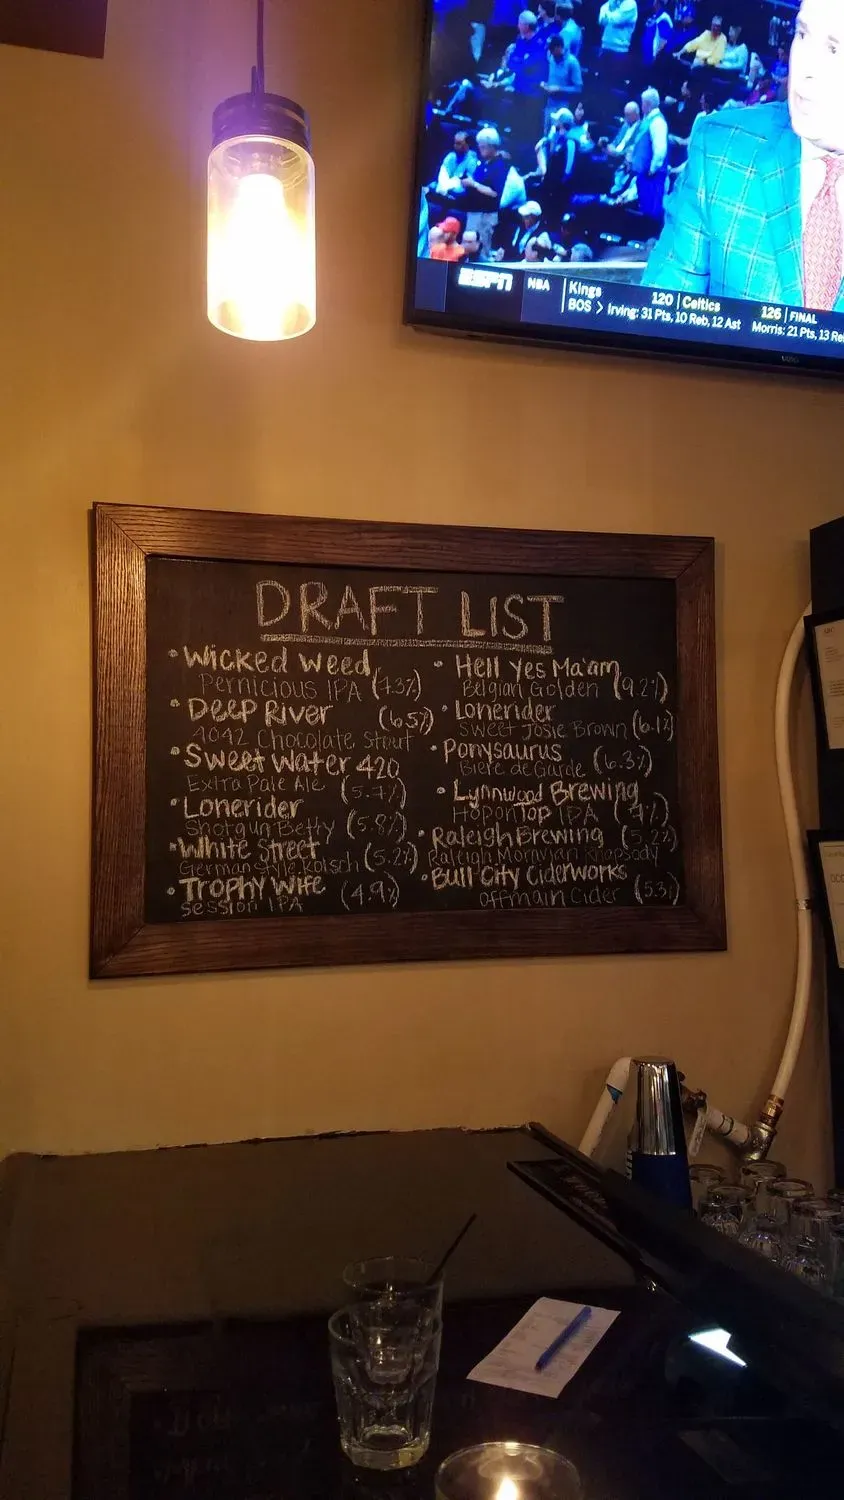 ESPN NBA Kings 120 Celtics 126 FINAL
BOS > Irving: 31 Pts, 10 Reb, 12 Ast Morris: 21 Pts, 13 Re
VIZIO
DRAFT LIST
• Wicked Weed
Pernicious IPA (7.3%)
• Deep River (6.5%)
4042 Chocolate Stout
• Sweet Water 420
Extra Pale Ale (5.7%)
• Lonerider
Shotgun Betty (5.8%)
• White Street
German Style Kolsch (5.2%)
• Trophy Wife (4.9%)
Session IPA
• Hell Yes Ma'am
Belgian Golden (9.2%)
• Lonerider
Sweet Josie Brown (6.1%)
• Ponysaurus
Biere de Garde (6.3%)
• Lynnwood Brewing
Hop on Top IPA (7%)
• Raleigh Brewing (5.2%)
Raleigh Moravian Rhapsody
• Bull City Ciderworks
Off Main Cider (5.3%)